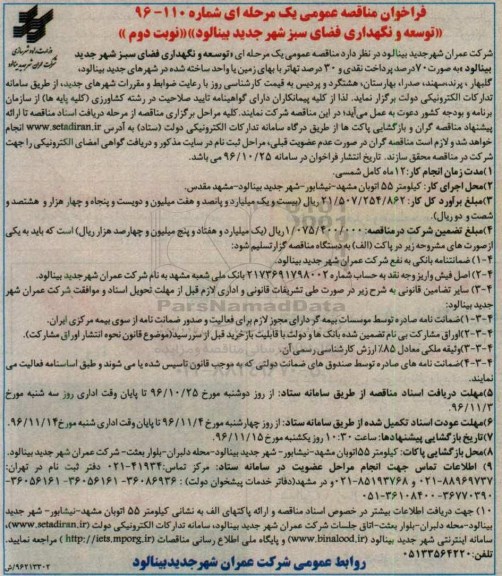 فراخوان مناقصه عمومی یک مرحله ای شماره ۱۱۰-۹۶
«توسعه و نگهداری فضای سبز شهر جدید بینالود»«نوبت دوم»
شرکت عمران شهر جدید بینالود در نظر دارد مناقصه عمومی یک مرحله ای «توسعه و نگهداری فضای سبز شهر جدید
بینالود» به صورت ۷۰ درصد پرداخت نقدی و ۳۰ درصد تهاتر با بهای زمین یا واحد ساخته شده در شهرهای جدید بینالود،
گلبهار، پرند، سهند، صدرا، بهارستان، هشتگرد و پردیس به قیمت کارشناسی روز با رعایت ضوابط و مقررات شهرهای جدید، از طریق سامانه
تدارکات الکترونیکی دولت برگزار نماید. لذا از کلیه پیمانکاران دارای گواهینامه تایید صلاحیت در رشته کشاورزی (کلیه پایه ها) از سازمان
برنامه و بودجه کشور دعوت به عمل می آید؛ در این مناقصه شرکت نمایند. کلیه مراحل برگزاری مناقصه از مرحله دریافت اسناد مناقصه تا ارائه
پیشنهاد مناقصه گران و بازگشایی پاکت ها از طریق درگاه سامانه تدارکات الکترونیکی دولت (ستاد) به آدرس www.setadiran.ir انجام
خواهد شد و لازم است مناقصه گران در صورت عدم عضویت قبلی، مراحل ثبت نام در سایت مذکور و دریافت گواهی امضای الکترونیکی را جهت
شرکت در مناقصه محقق سازند. تاریخ انتشار فراخوان در سامانه ۹۶/۱۰/۲۵ می باشد.
۱)مدت زمان انجام کار: ۱۲ ماه کامل شمسی.
۲)محل اجرای کار: کیلومتر ۵۵ اتوبان مشهد-نیشابور-شهر جدید بینالود-مشهد مقدس.
۳)مبلغ برآورد کل کار: ۲۱/۵۰۷/۲۵۴/۸۶۲ ریال (بیست و یک میلیارد و پانصد و هفت میلیون و دویست و پنجاه و چهار هزار و هشتصد و
شصت و دو ریال).
۴)مبلغ تضمین شرکت در مناقصه: ۱/۰۷۵/۴۰۰/۰۰۰ ریال (یک میلیارد و هفتاد و پنج میلیون و چهارصد هزار ریال) است که باید به یکی
از صورت های مشروحه زیر در پاکت (الف) به دستگاه مناقصه گزار تسلیم شود:
۴-۱) ضمانتنامه بانکی به نفع شرکت عمران شهر جدید بینالود.
۴-۲) اصل فیش واریز وجه نقد به حساب شماره ۲۱۷۳۶۹۱۷۹۸۰۰۲ بانک ملی شعبه مشهد به نام شرکت عمران شهر جدید بینالود.
۴-۳) سایر تضامین قانونی به شرح زیر در صورت طی تشریفات قانونی و اداری لازم قبل از مهلت تحویل اسناد و موافقت شرکت عمران شهر
جدید بینالود:
۴-۳-۱)ضمانت نامه صادره توسط موسسات بیمه گر دارای مجوز لازم برای فعالیت و صدور ضمانت نامه از سوی بیمه مرکزی ایران.
۴-۳-۲)اوراق مشارکت بی نام تضمین شده بانک ها و دولت با قابلیت بازخرید قبل از سررسید(موضوع قانون نحوه انتشار اوراق مشارکت).
۴-۳-۳)وثیقه ملکی معادل ۸۵٪ ارزش کارشناسی رسمی آن.
۴-۳-۴)ضمانت نامه های صادره توسط صندوق های ضمانت دولتی که به موجب قانون تاسیس شده یا می شوند و طبق اساسنامه فعالیت می
نمایند.
۵)مهلت دریافت اسناد مناقصه از طریق سامانه ستاد: از روز دوشنبه مورخ ۹۶/۱۰/۲۵ تا پایان وقت اداری روز سه شنبه مورخ
۹۶/۱۱/۳.
۶)مهلت عودت اسناد تکمیل شده از طریق سامانه ستاد: از روز چهارشنبه مورخ ۹۶/۱۱/۴ تا پایان وقت اداری شنبه مورخ ۹۶/۱۱/۱۴.
۷)تاریخ بازگشایی پیشنهادها: ساعت ۱۰:۳۰ روز یکشنبه مورخ ۹۶/۱۱/۱۵
۸)محل بازگشایی پاکات: کیلومتر ۵۵ اتوبان مشهد-نیشابور- شهر جدید بینالود-محله دلبران-بلوار بعثت- شرکت عمران شهر جدید بینالود.
۹) اطلاعات تماس جهت انجام مراحل عضویت در سامانه ستاد: مرکز تماس: ۴۱۹۳۴-۰۲۱ دفتر ثبت نام در تهران:
۸۸۹۶۹۷۳۷-۰۲۱ و ۸۵۱۹۳۷۶۸-۰۲۱ و در مشهد(دفاتر خدمات پیشخوان دولت): ۳۶۰۸۶۹۳۶-
۳۶۷۷۰۳۹۰
۱۰) جهت دریافت اطلاعات بیشتر در خصوص اسناد مناقصه و ارائه پاکتهای الف به نشانی کیلومتر ۵۵ اتوبان مشهد-نیشابور- شهر جدید
بینالود-محله دلبران-بلوار بعثت-اتاق جلسات شرکت عمران شهر جدید بینالود، سامانه تدارکات الکترونیکی دولت (www.setadiran.ir)،
سامانه اینترنتی شهر جدید بینالود (www.binalood.ir) و پایگاه ملی اطلاع رسانی مناقصات (http://iets.mporg.ir) مراجعه نمایید.
تلفن: ۰۵۱۳۳۵۶۴۲۲۰
روابط عمومی شرکت عمران شهر جدید بینالود
ParsNamadData